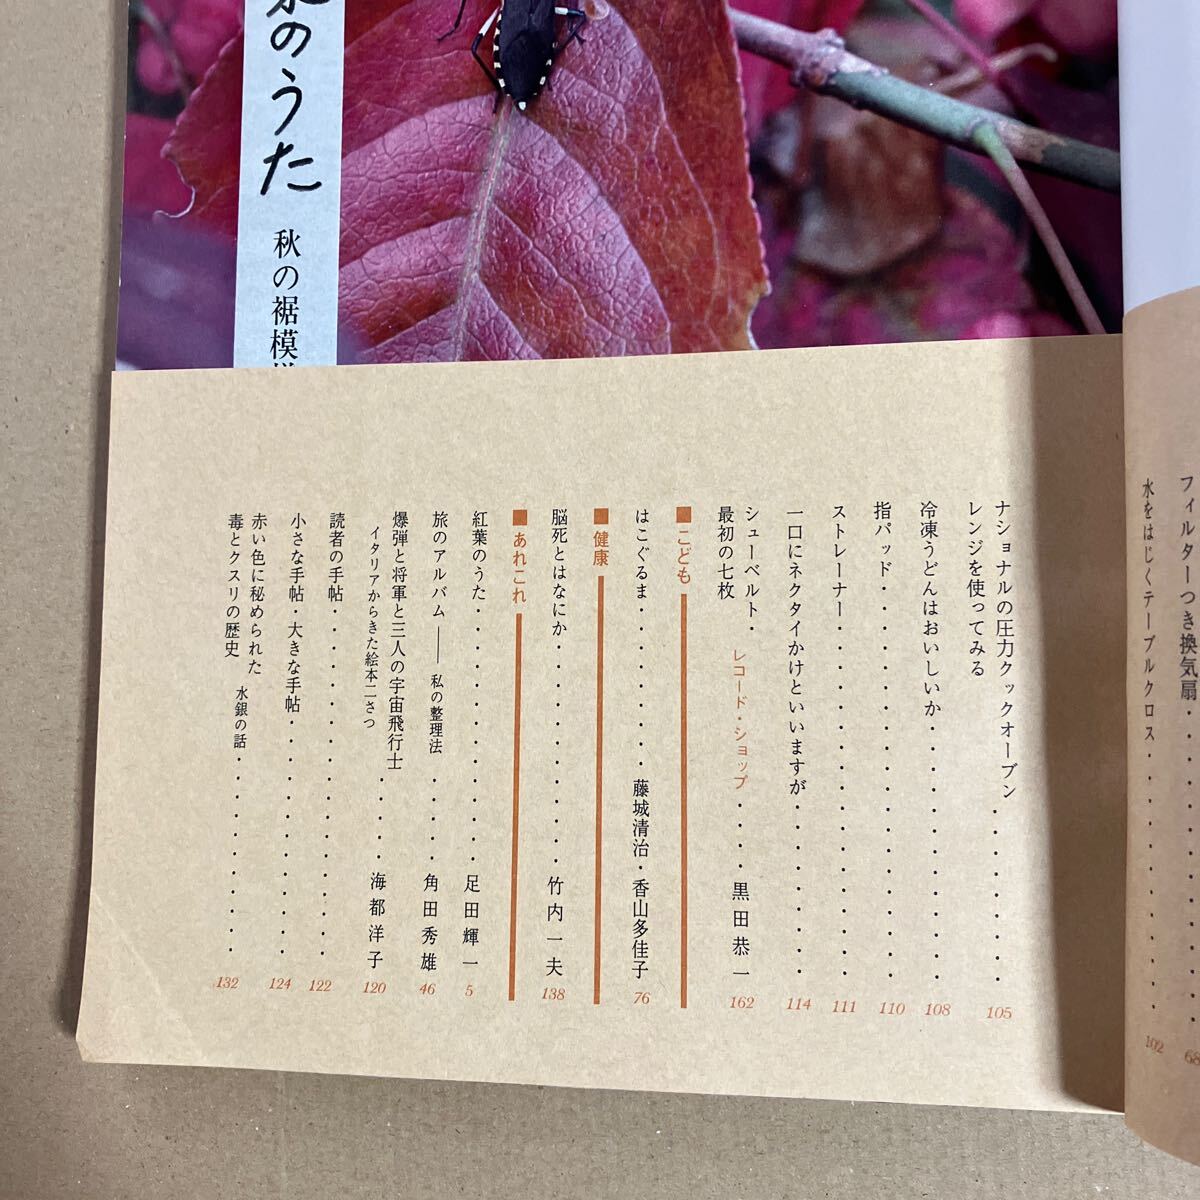 のうた
秋の裾模
フィルターつき換気扇・・・・・・・・・・・68
水をはじくテーブルクロス・・・・・・・・・・102
ナショナルの圧力クックオーブン
レンジを使ってみる・・・・・・・・・・105
冷凍うどんはおいしいか・・・・・・・・・・・・108
指パッド・・・・・・・・・・・・・・・・・110
ストレーナー・・・・・・・・・・・・・・・・111
一口にネクタイかけといいますが・・・・・・・・・114
シューベルト・
最初の七枚 レコード・ショップ・・・・黒田恭一 162
■こども
はこぐるま・・・・・・・・藤城清治・香山多佳子 76
■健康
脳死とはなにか・・・・・・・・・・・竹内一夫 138
■あれこれ
紅葉のうた・・・・・・・・・・・・・足田輝一 5
旅のアルバム――私の整理法・・・・角田秀雄 46
爆弾と将軍と三人の宇宙飛行士
イタリアからきた絵本二さつ・・・・海都洋子 120
読者の手帖・・・・・・・・・・・・・・・・・122
小さな手帖・大きな手帖・・・・・・・・・・・・124
赤い色に秘められた
毒とクスリの歴史 水銀の話・・・・・・・・・・132